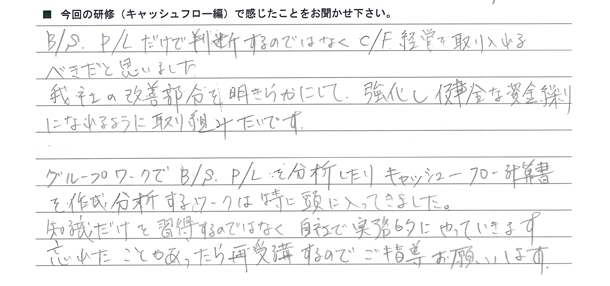 ■ 今回の研修（キャッシュフロー編）で感じたことをお聞かせ下さい。
B/S. P/Lだけで判断するのではなく C/F経営を取り入れる
べきだと思いました
我社の改善部分を明きらかにして、強化し健全な資金繰り
になれるように取り組みたいです.
グループワークで B/S. P/L を分析したり キャッシューフロー計算書
を作成分析するワークは特に頭に入ってきました。
知識だけを習得するのではなく 自社で実務的にやっていきます
忘れたことがあったら再受講するので ご指導お願いします.